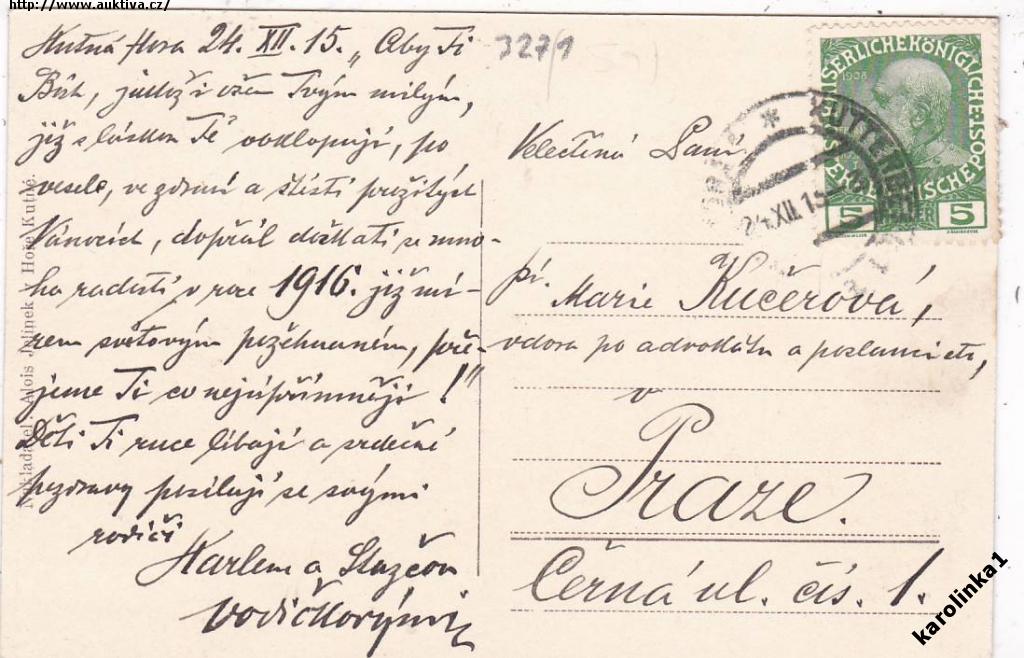 http://www.auktiva.cz/
Kutná Hora 24. XII. 15. „Aby Ti
Bůh, jakož i všem Tvým milým,
již s láskou Tě vodlopují, po
vesele, ve zdraví a štěstí prožitých
Vánocích, dopřál dočkati se mno-
ha radostí v roce 1916. již mí-
rem světovým požehnaném, pře-
jeme Ti co nejupřímněji!"
Děti Ti ruce líbají a srdečné
pozdravy posílají se svými
rodiči
Karlem a
Vodičkovými
Nakladatel: Alois Jelínek v Hoře Kutné.
3271
KAISERLICHE KÖNIGLICHE
ÖSTERREICHISCHE POST
1908
5 HELLER 5
KUTTENBERG
24.XII.15
Velectěná Paní
pí.
Marie Kučerová,
vdova po advokátu a poslanci etc,
v
Praze.
Černá ul. čís. 1.
karolinka1